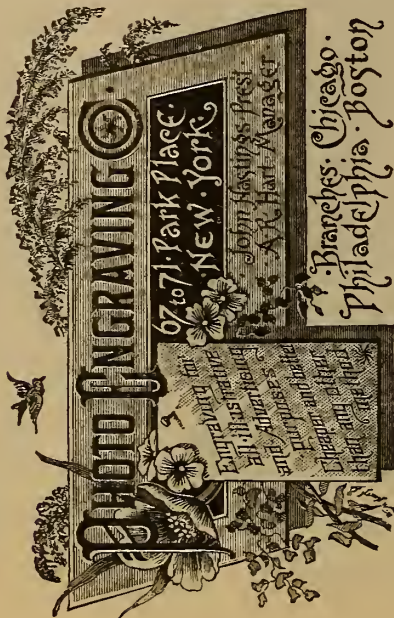 PHOTO ENGRAVING CO.
67 to 71 · Park Place ·
NEW · York ·
John Hastings Pres't
A.K. Hart Manager
Engraving for
all illustrating
and advertising
purposes
Cheaper and better
than any other
· Branches · Chicago ·
Philadelphia · Boston